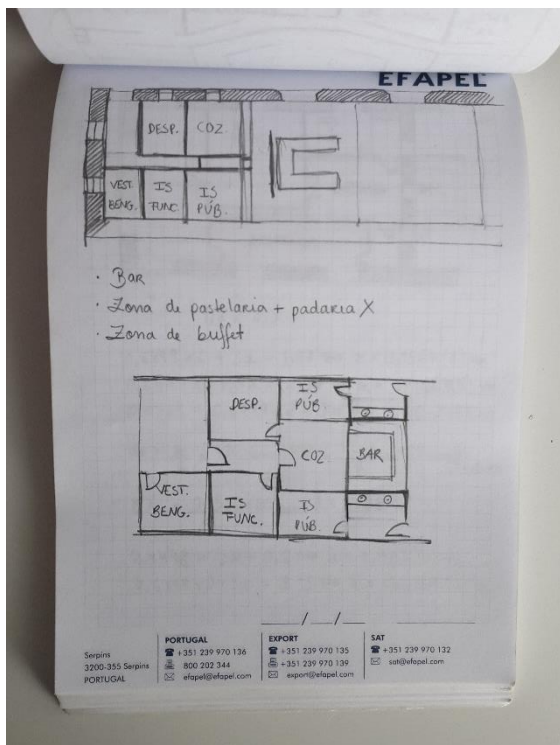 EFAPEL
DESP. COZ.
VEST. BENG. IS FUNC. IS PÚB.
· Bar
· Zona de pastelaria + padaria X
· Zona de buffet
IS PÚB.
DESP.
COZ BAR
VEST. BENG. IS FUNC. IS PÚB.
__/__/__
Serpins
3200-355 Serpins
PORTUGAL
PORTUGAL
+351 239 970 136
800 202 344
efapel@efapel.com
EXPORT
+351 239 970 135
+351 239 970 139
export@efapel.com
SAT
+351 239 970 132
sat@efapel.com